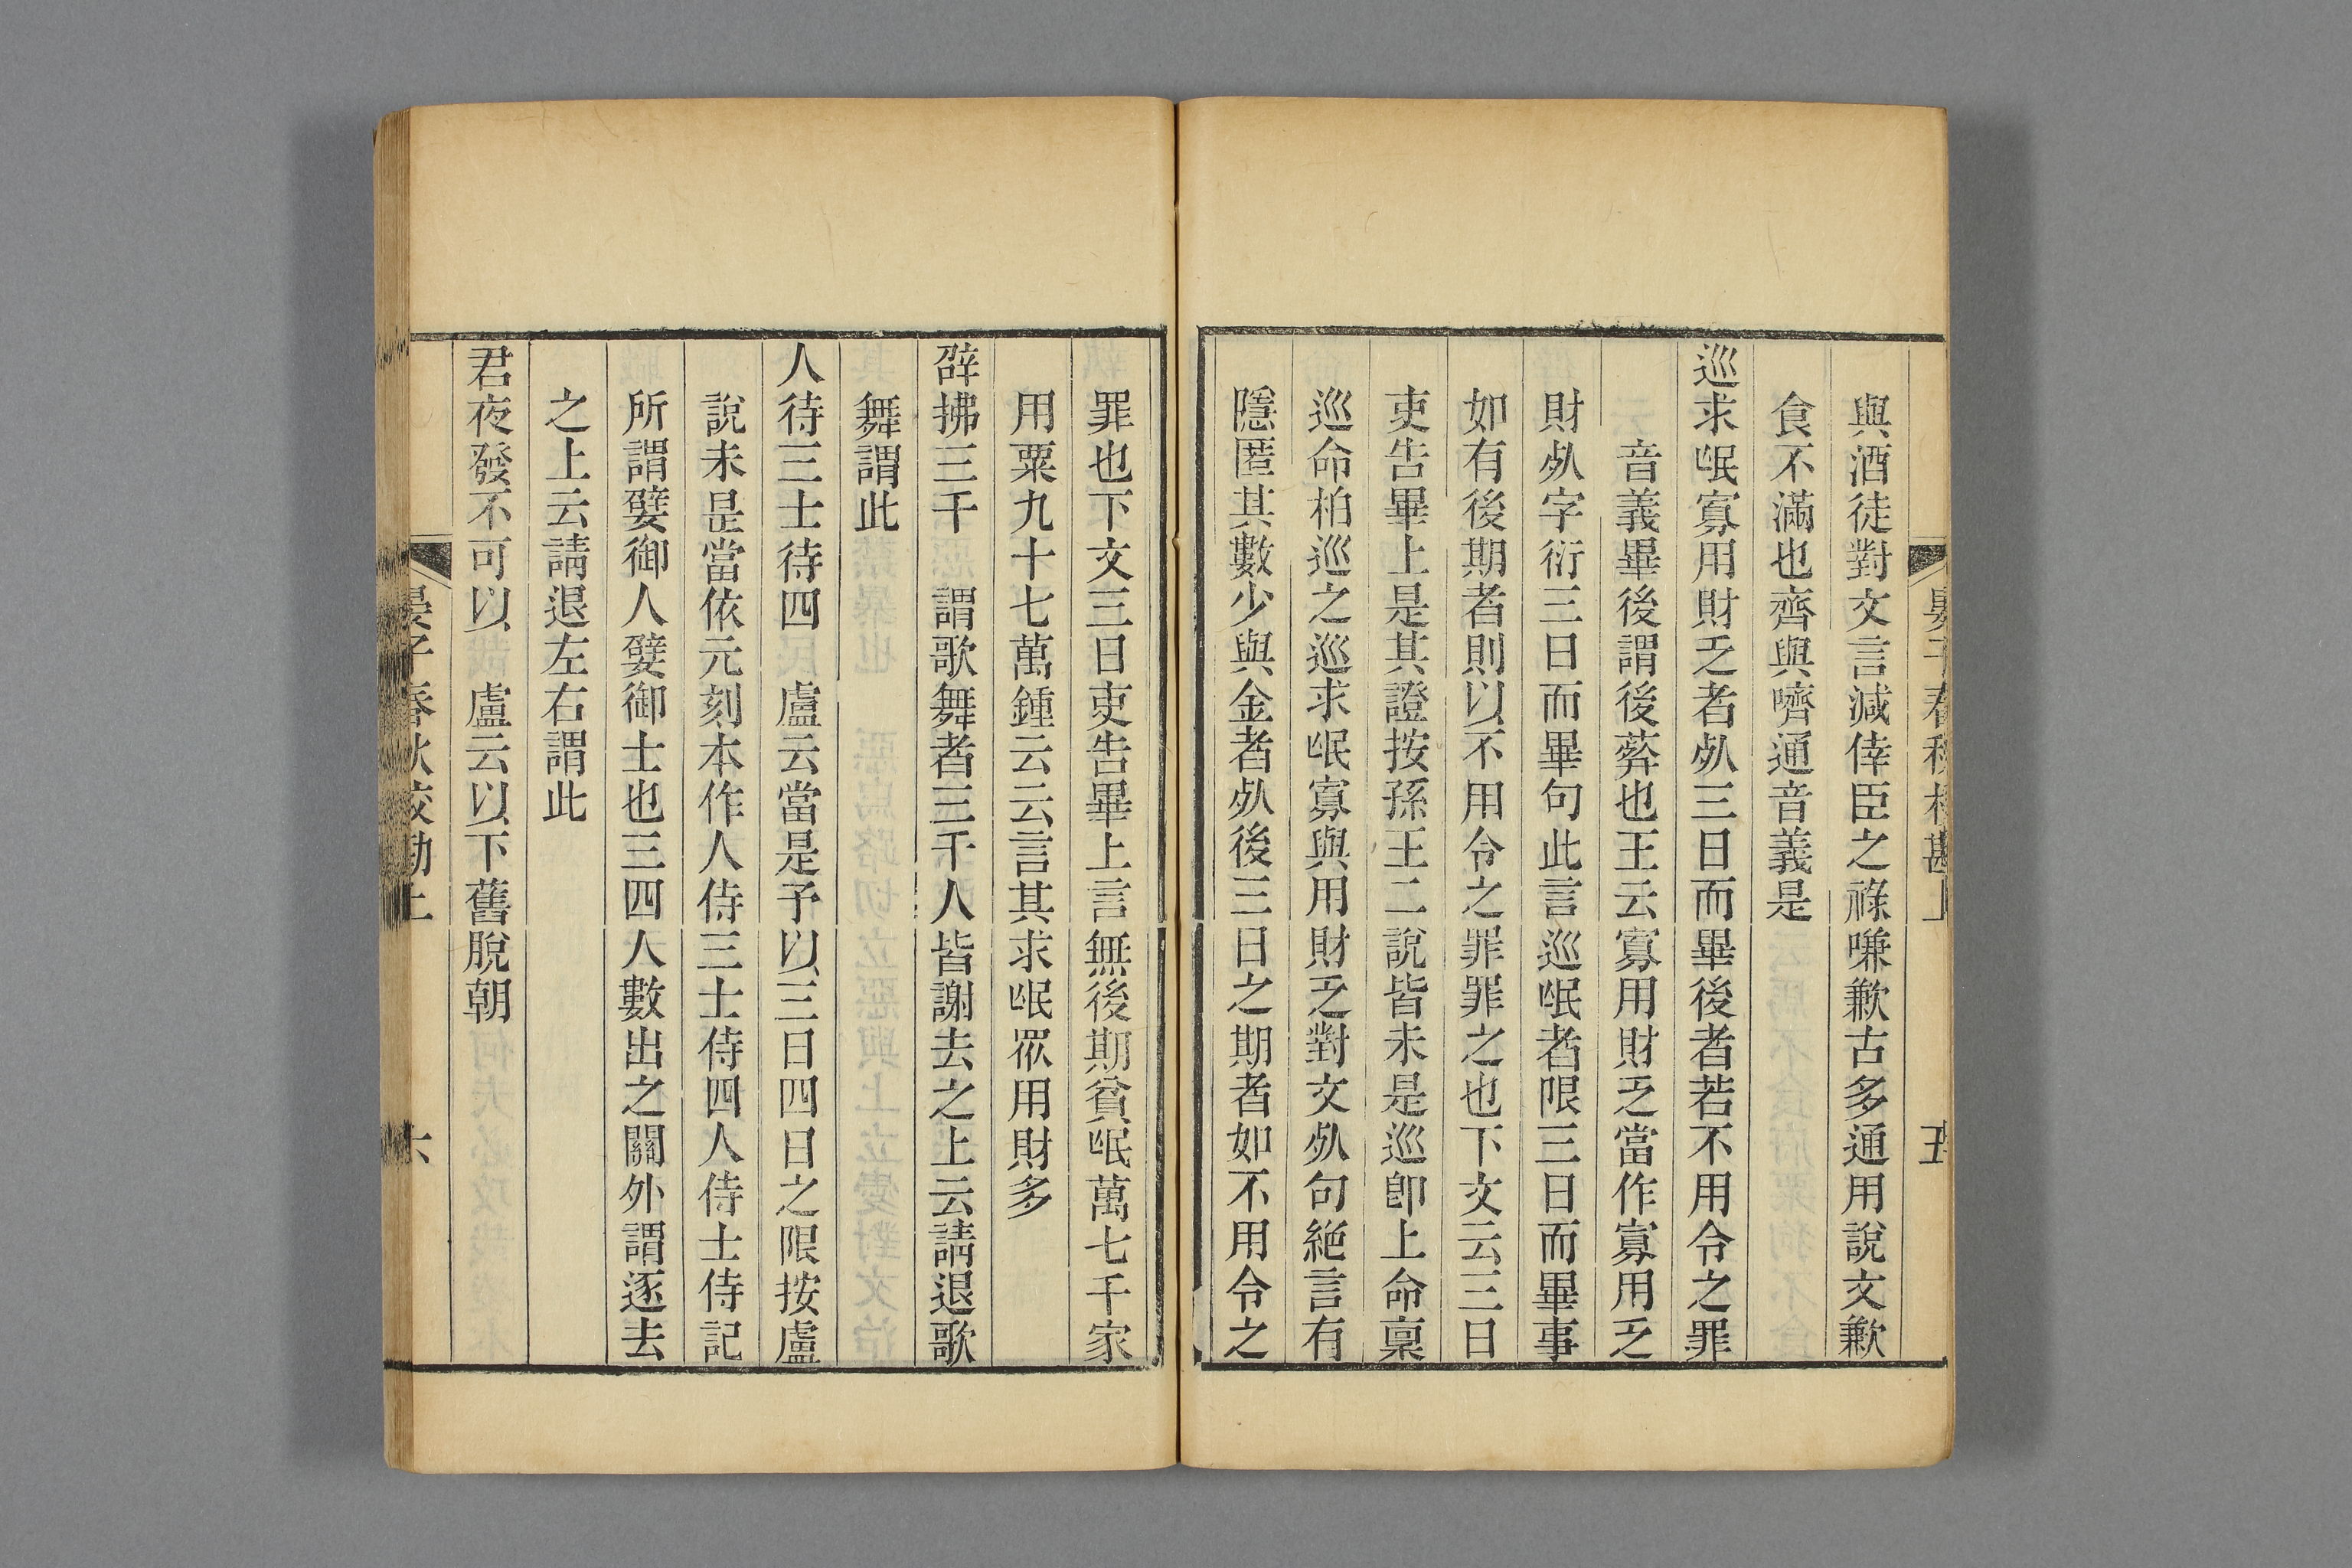 晏子春秋校勘上 五
與酒徒對文言減倖臣之祿嗛歉古多通用說文歉
食不滿也齊與嚌通音義是
巡求氓寡用財乏者𣦸三日而畢後者若不用令之罪
音義畢後謂後葬也王云寡用財乏當作寡用乏
財𣦸字衍三日而畢句此言巡氓者限三日而畢事
如有後期者則以不用令之罪罪之也下文云三日
吏告畢上是其證按孫王二說皆未是巡卽上命稟
巡命柏巡之巡求氓寡與用財乏對文𣦸句絕言有
隱匿其數少與金者𣦸後三日之期者如不用令之
罪也下文三日吏告畢上言無後期貧氓萬七千家
用粟九十七萬鍾云云言其求氓眾用財多
辟拂三千 謂歌舞者三千人皆謝去之上云請退歌
舞謂此
人待三士待四 盧云當是予以三日四日之限按盧
說未是當依元刻本作人侍三士侍四人侍士侍記
所謂嬖御人嬖御士也三四人數出之關外謂逐去
之上云請退左右謂此
君夜發不可以 盧云以下舊脫朝
晏子春秋校勘上 六